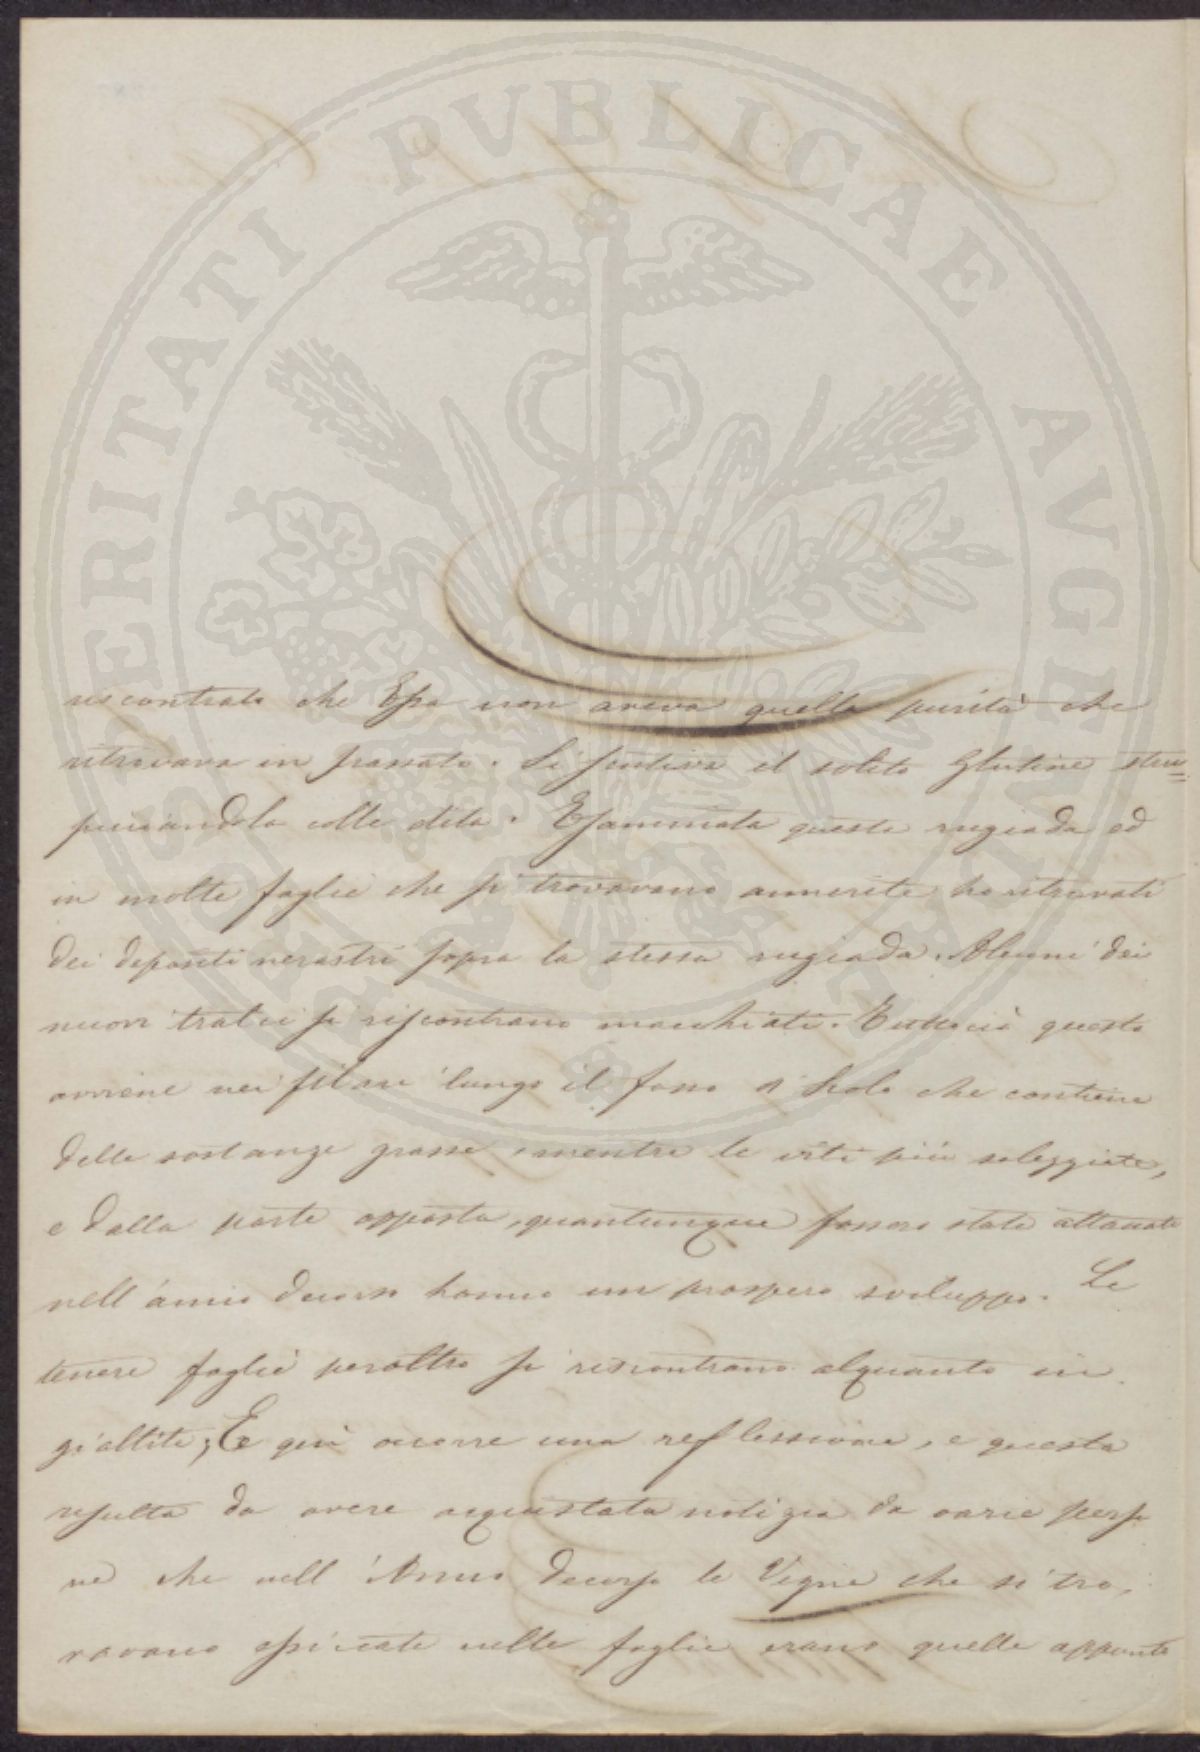 PROSPERITATI PVBLICAE AVGENDAE
riscontrato che Essa non aveva quella purità che
ritrovava in passato. Si sentiva il solito Glutine stro=
picciandola colle dita. Esaminata questa rugiada ed
in molte foglie che si trovavano annerite ho ritrovati
dei depositi nerastri sopra la stessa rugiada. Alcuni dei
nuovi tralci si riscontrano macchiati. Tuttociò questo
avviene nei filari lungo il fosso di Scolo che contiene
delle sostanze grasse, mentre le viti più soleggiate,
e dalla parte opposta, quantunque fossero state attaccate
nell'anno decorso hanno un prospero sviluppo. Le
tenere foglie peraltro si riscontrano alquanto in
giallite; E quì occorre una reflessione, e questa
resulta da avere acquistata notizia da varie perso
ne che nell'Anno decorso le Vigne che si tro,
vavano essiccate nelle foglie erano quelle appunto